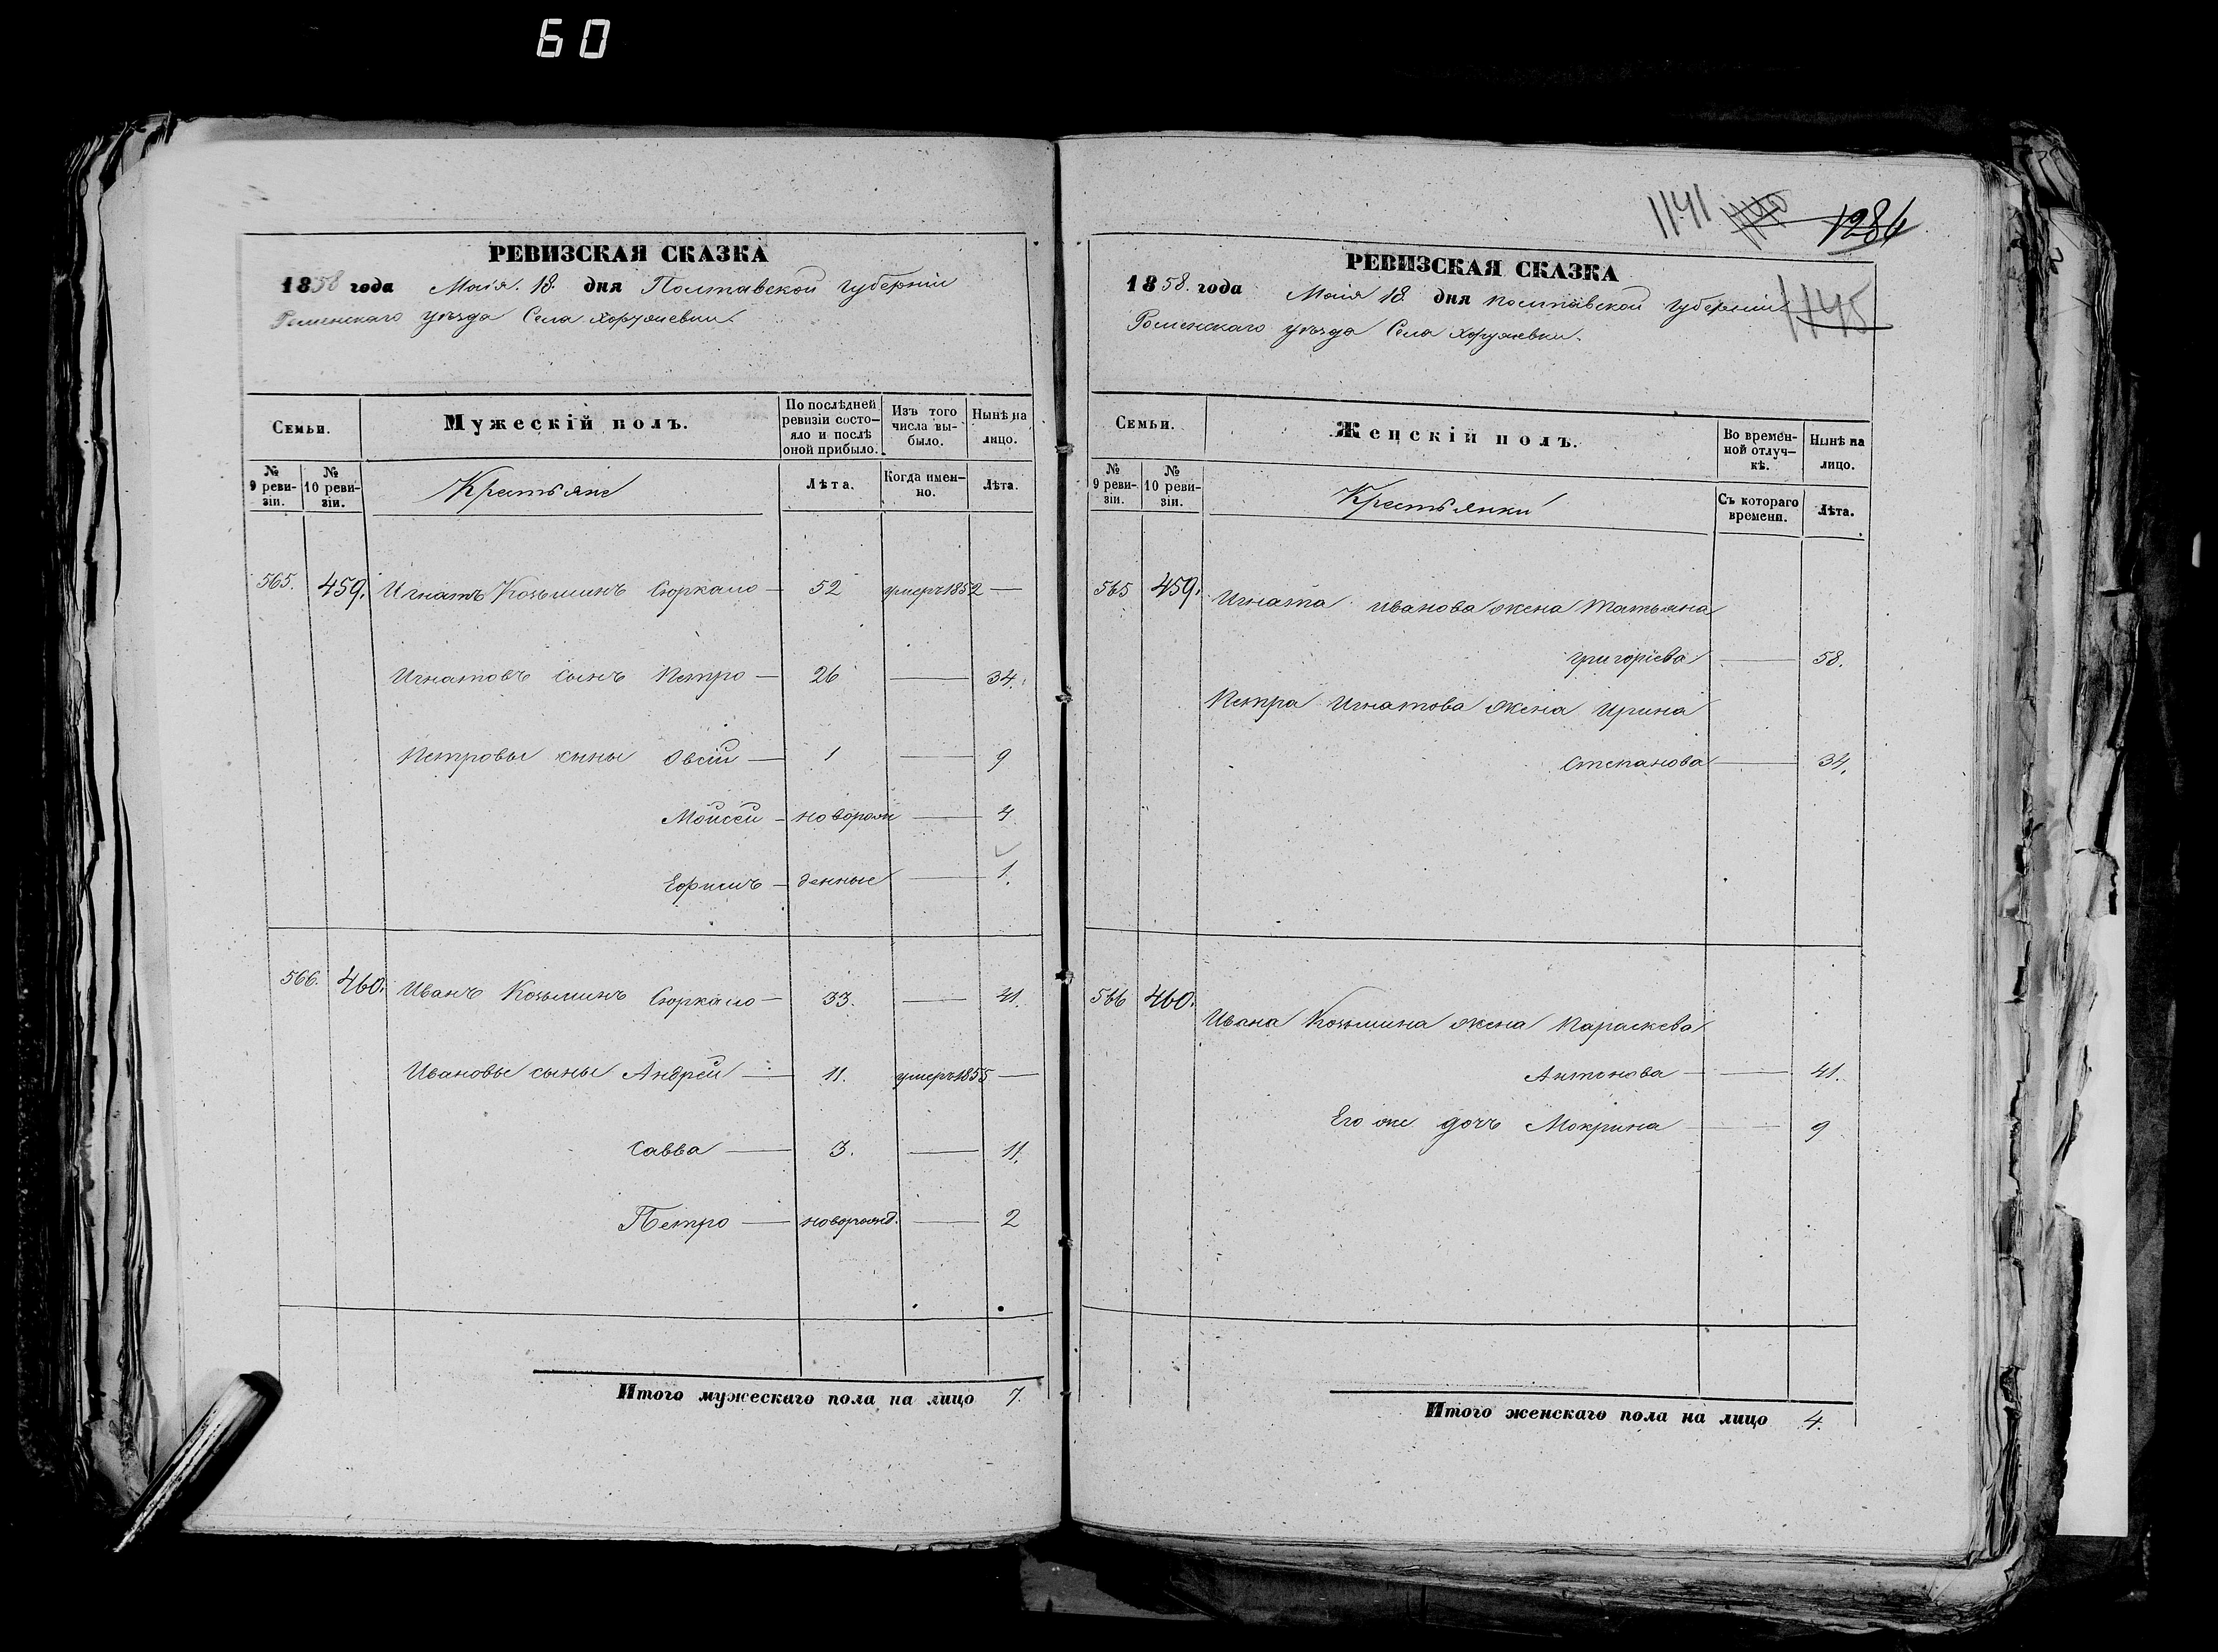 60
РЕВИЗСКАЯ СКАЗКА
1858 года Маія 18. дня Полтавской губерніи
Роменскаго уѣзда Села Хоружевки.
Семьи.
Мужескій полъ.
По послѣдней ревизіи состо-
яло и послѣ оной прибыло.
Изъ того числа вы-
было.
Нынѣ на лицо.
№ 9 реви-
зіи.
№ 10 реви-
зіи.
Крестьяне
Лѣта.
Когда имен-
но.
Лѣта.
565. 459. Игнатъ Козьминъ Сюркало — 52 умеръ 1852 —
Игнатовъ сынъ Петро — 26 — 34.
Петровы сыны Овсій — 1 — 9
Мойсей — новорож — 4
Ефимъ — денные — 1.
566. 460. Иванъ Козьминъ Сюркало — 33. — 41.
Ивановы сыны Андрей — 11. умеръ 1855 —
Савва — 3. — 11.
Петро — новорожд. — 2
Итого мужескаго пола на лицо 7.
1141 1140 1286
РЕВИЗСКАЯ СКАЗКА
1858. года Маія 18. дня Полтавской губерніи
1145
Роменскаго уѣзда Села Хоружевки.
Семьи.
Женскій полъ.
Во времен-
ной отлуч-
кѣ.
Нынѣ на лицо.
№ 9 реви-
зіи.
№ 10 реви-
зіи.
Крестьянки
Съ котораго времени.
Лѣта.
565 459. Игната Иванова жена Татьяна
Григоріева — 58.
Петра Игнатова жена Ирина
Степанова — 34.
566 460. Ивана Козьмина жена Параскева
Антонова — 41.
Его же дочь Мокрина — 9
Итого женскаго пола на лицо 4.